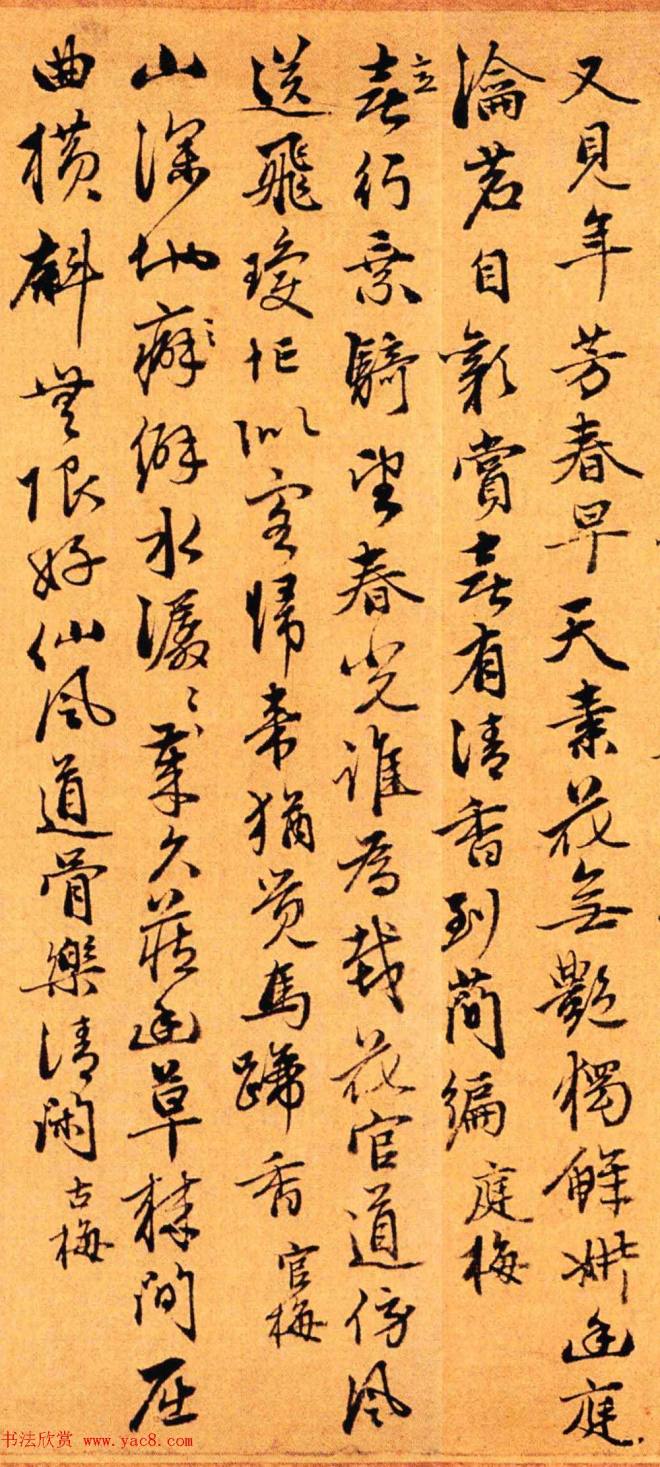 又見年芳春早天素花無艷獨鮮妍幽庭
瀹茗自賞喜有清香到簡編 庭梅
喜行乘騎望春光誰為栽花官道傍風
送飛瓊似客歸來猶覺馬蹄香 官梅
山深地癖僻水潺潺歲久藏幽草棘間屈
曲橫斜無限好仙風道骨樂清閑 古梅
书法欣赏 www.yac8.com